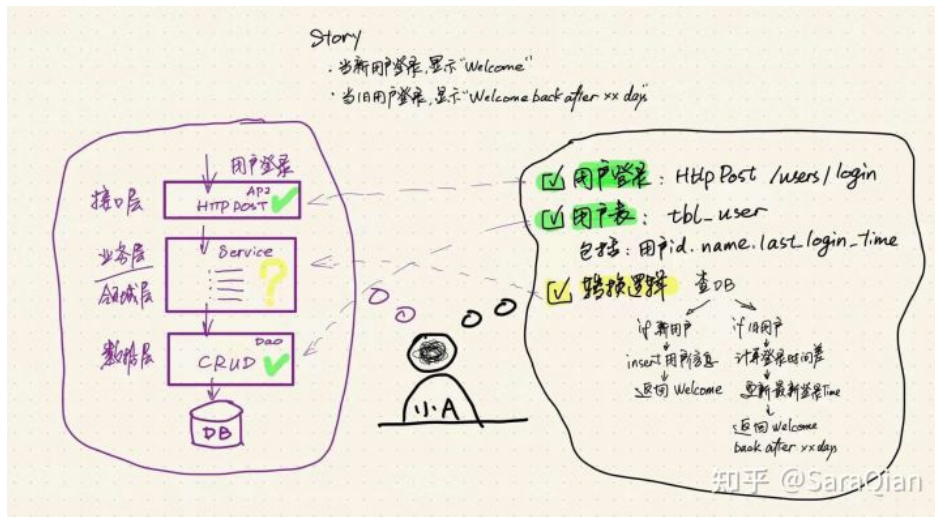 Story
· 当新用户登录,显示"Welcome"
· 当旧用户登录,显示"Welcome back after xx days
用户登录
接口层
API
HTTP POST
业务层
领域层
Service
?
数据层
Dao
CRUD
DB
小A
用户登录: Http Post /users/login
用户表: tbl_user
包括: 用户id.name.last_login_time
转换逻辑 查DB
if 新用户
insert 用户信息
返回 Welcome
if 旧用户
计算登录时间差
更新最新登录Time
返回 Welcome
back after xx days
知乎 @SaraQian